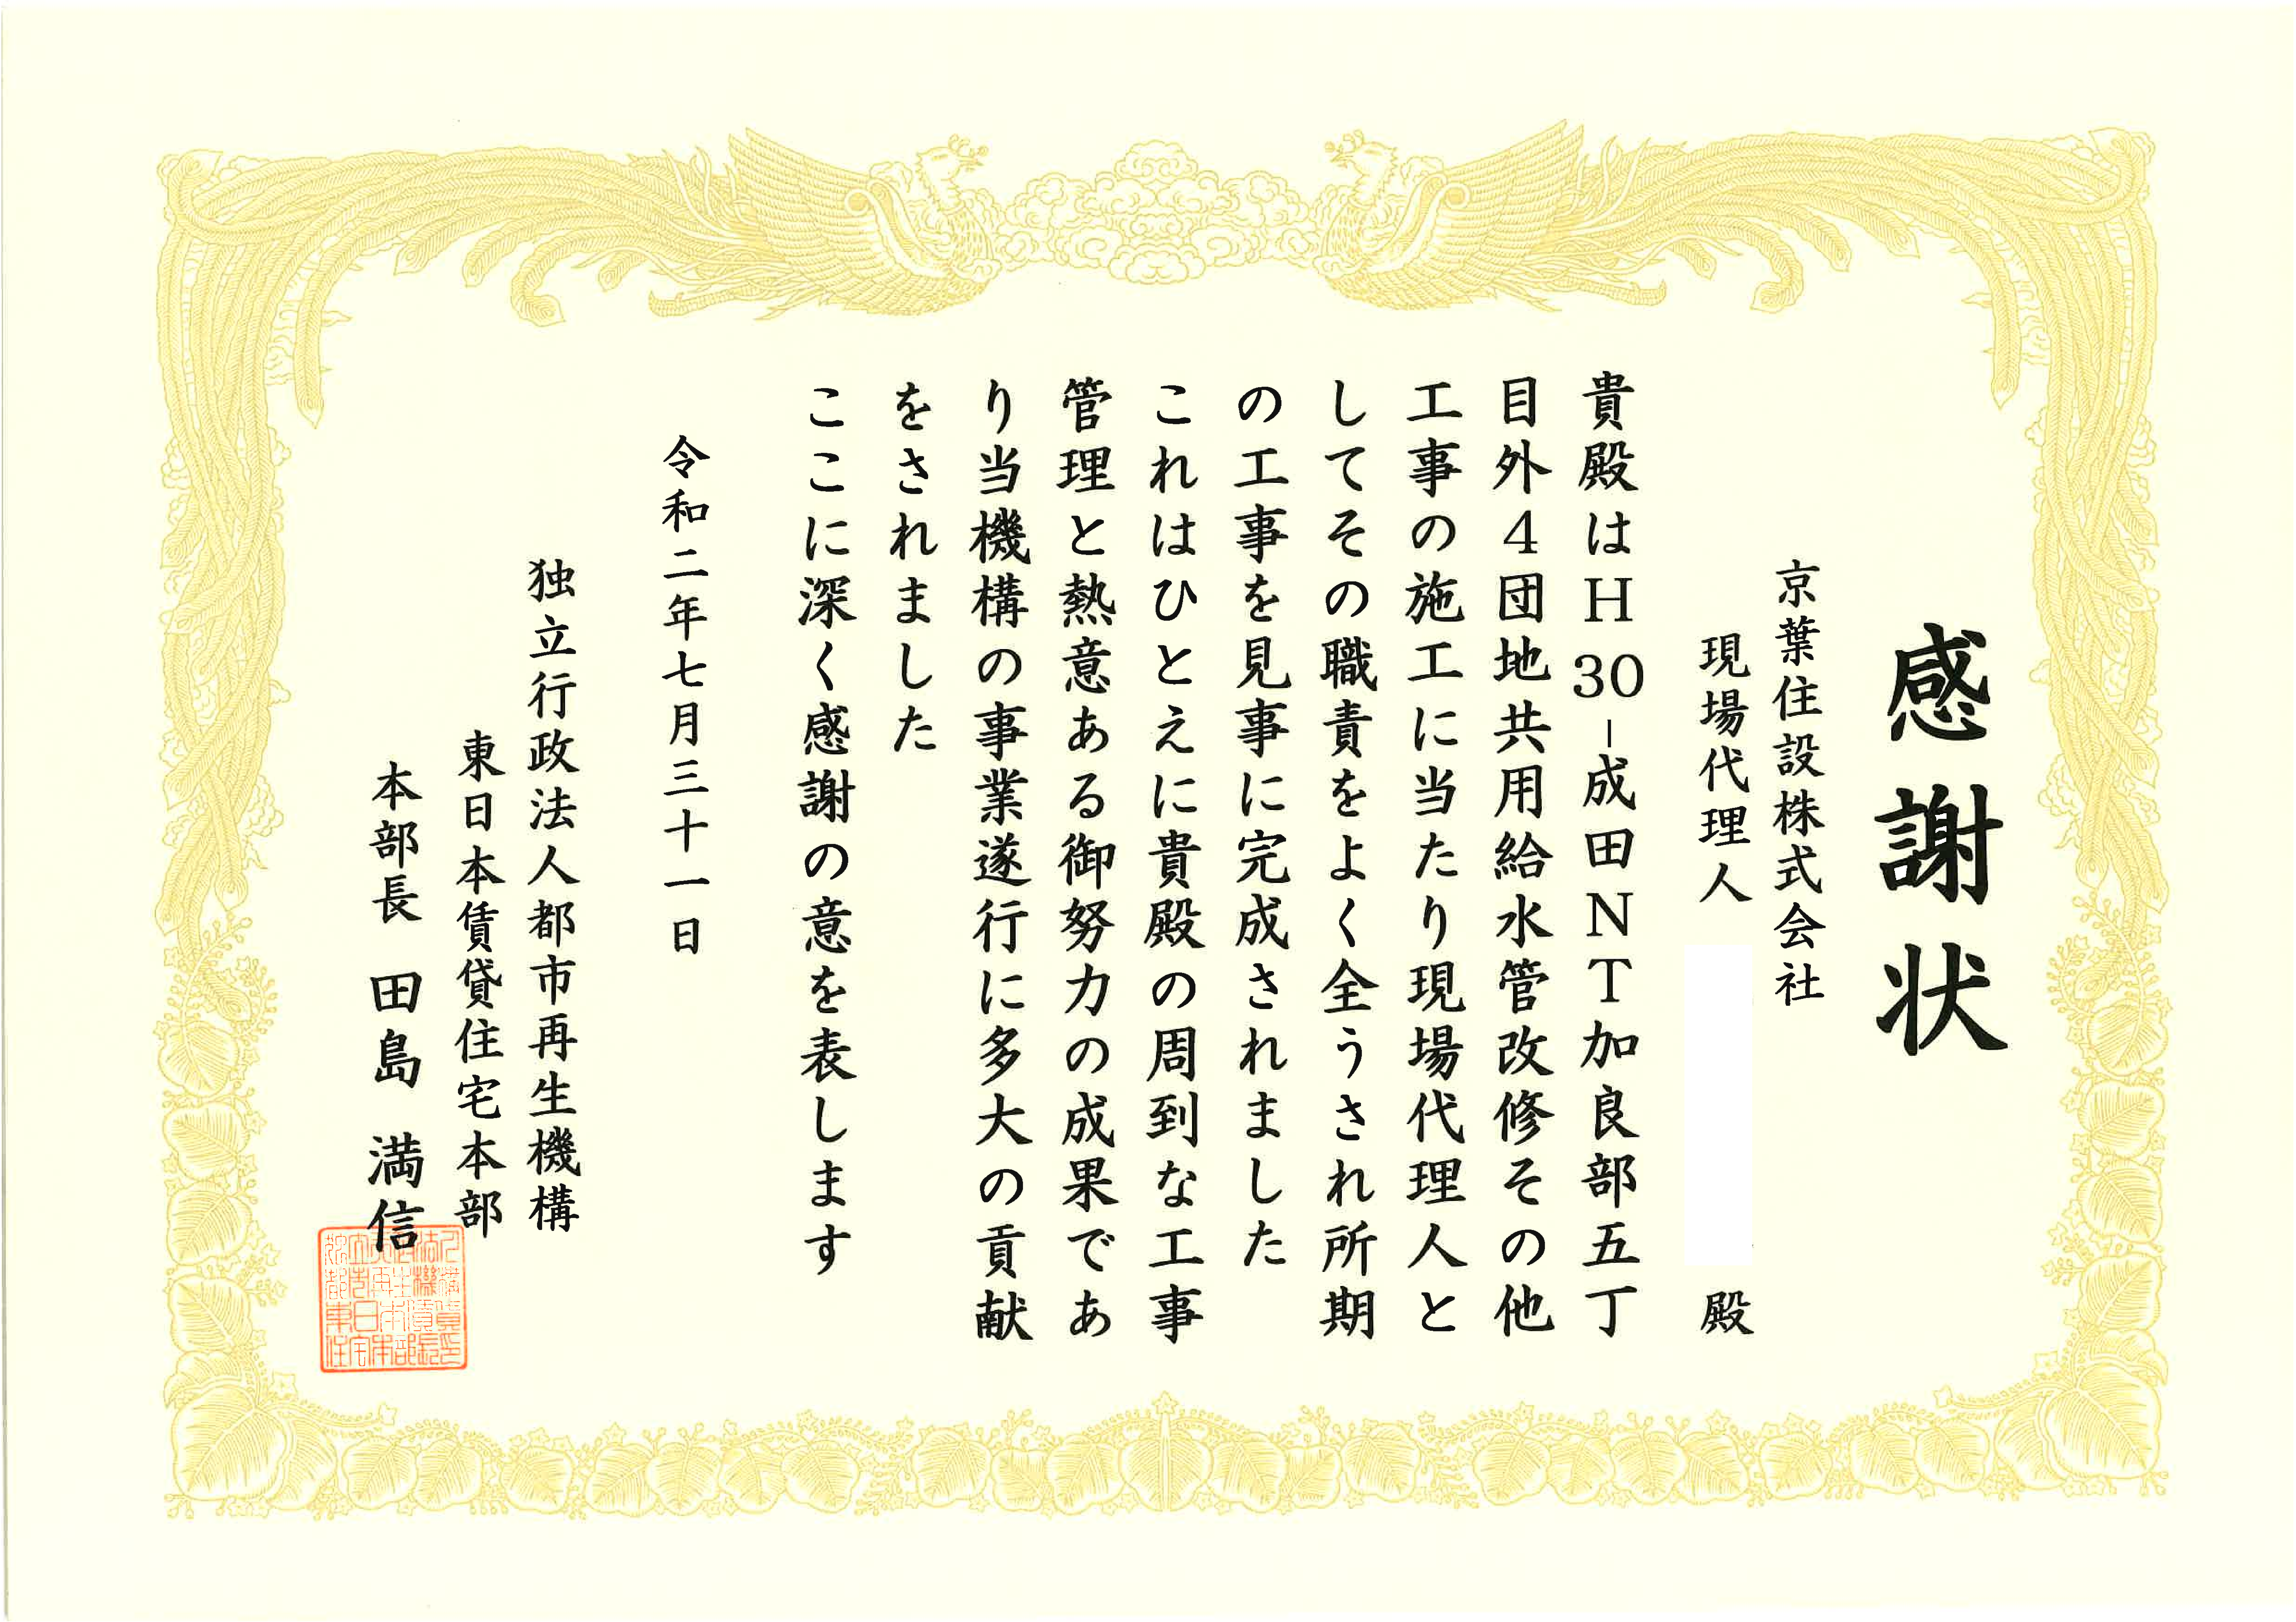 感謝状
京葉住設株式会社
現場代理人 殿
貴殿はH30-成田NT加良部五丁
目外4団地共用給水管改修その他
工事の施工に当たり現場代理人と
してその職責をよく全うされ所期
の工事を見事に完成されました
これはひとえに貴殿の周到な工事
管理と熱意ある御努力の成果であ
り当機構の事業遂行に多大の貢献
をされました
ここに深く感謝の意を表します
令和二年七月三十一日
独立行政法人都市再生機構
東日本賃貸住宅本部
本部長 田島 満信